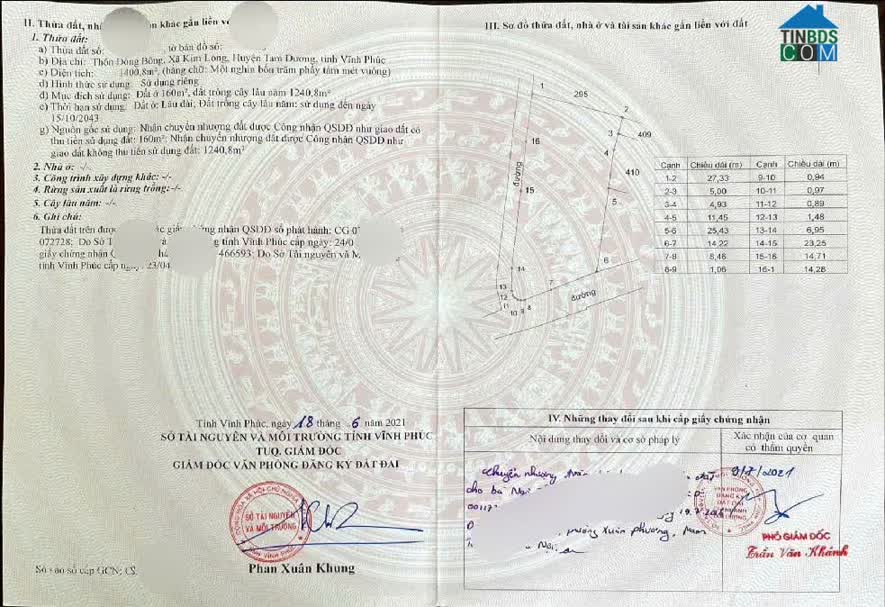 II. Thửa đất, nhà khác gắn liền với
1. Thửa đất:
a) Thửa đất số: tờ bản đồ số:
b) Địa chỉ: Thôn Đồng Bông, Xã Kim Long, Huyện Tam Dương, tỉnh Vĩnh Phúc
c) Diện tích: 1400,8m², (bằng chữ: Một nghìn bốn trăm phẩy tám mét vuông)
d) Hình thức sử dụng: Sử dụng riêng
đ) Mục đích sử dụng: Đất ở 160m², đất trồng cây lâu năm 1240,8m²
e) Thời hạn sử dụng: Đất ở: Lâu dài; Đất trồng cây lâu năm: sử dụng đến ngày
15/10/2043
g) Nguồn gốc sử dụng: Nhận chuyển nhượng đất được Công nhận QSDĐ như giao đất có
thu tiền sử dụng đất: 160m²; Nhận chuyển nhượng đất được Công nhận QSDĐ như
giao đất không thu tiền sử dụng đất: 1240,8m²
2. Nhà ở: -/-
3. Công trình xây dựng khác: -/-
4. Rừng sản xuất là rừng trồng: -/-
5. Cây lâu năm: -/-
6. Ghi chú:
Thửa đất trên được giấy chứng nhận QSDĐ số phát hành: CG
072728; Do Sở T tỉnh Vĩnh Phúc cấp ngày: 24/0
giấy chứng nhận 466593; Do Sở Tài nguyên và M
tỉnh Vĩnh Phúc cấp ngày: 23/04
Tỉnh Vĩnh Phúc, ngày 18 tháng 6 năm 2021
SỞ TÀI NGUYÊN VÀ MÔI TRƯỜNG TỈNH VĨNH PHÚC
TUQ. GIÁM ĐỐC
GIÁM ĐỐC VĂN PHÒNG ĐĂNG KÝ ĐẤT ĐAI
SỞ TÀI NGUYÊN
VÀ MÔI TRƯỜNG
Phan Xuân Khung
Số vào sổ cấp GCN: CS
III. Sơ đồ thửa đất, nhà ở và tài sản khác gắn liền với đất
TINBDS
COM
1
295
2
3
409
4
16
410
đường
15
5
14
6
13
12
7
11
đường
10 9 8
Cạnh Chiều dài (m) Cạnh Chiều dài (m)
1-2 27,33 9-10 0,94
2-3 5,00 10-11 0,97
3-4 4,93 11-12 0,89
4-5 11,45 12-13 1,48
5-6 25,43 13-14 6,95
6-7 14,22 14-15 23,25
7-8 8,46 15-16 14,71
8-9 1,06 16-1 14,28
IV. Những thay đổi sau khi cấp giấy chứng nhận
Nội dung thay đổi và cơ sở pháp lý
Xác nhận của cơ quan
có thẩm quyền
Chuyển nhượng
cho bà
phường Xuân Phương,
9/7/2021
VĂN PHÒNG
ĐĂNG KÝ
ĐẤT ĐAI
PHÓ GIÁM ĐỐC
Trần Văn Khánh